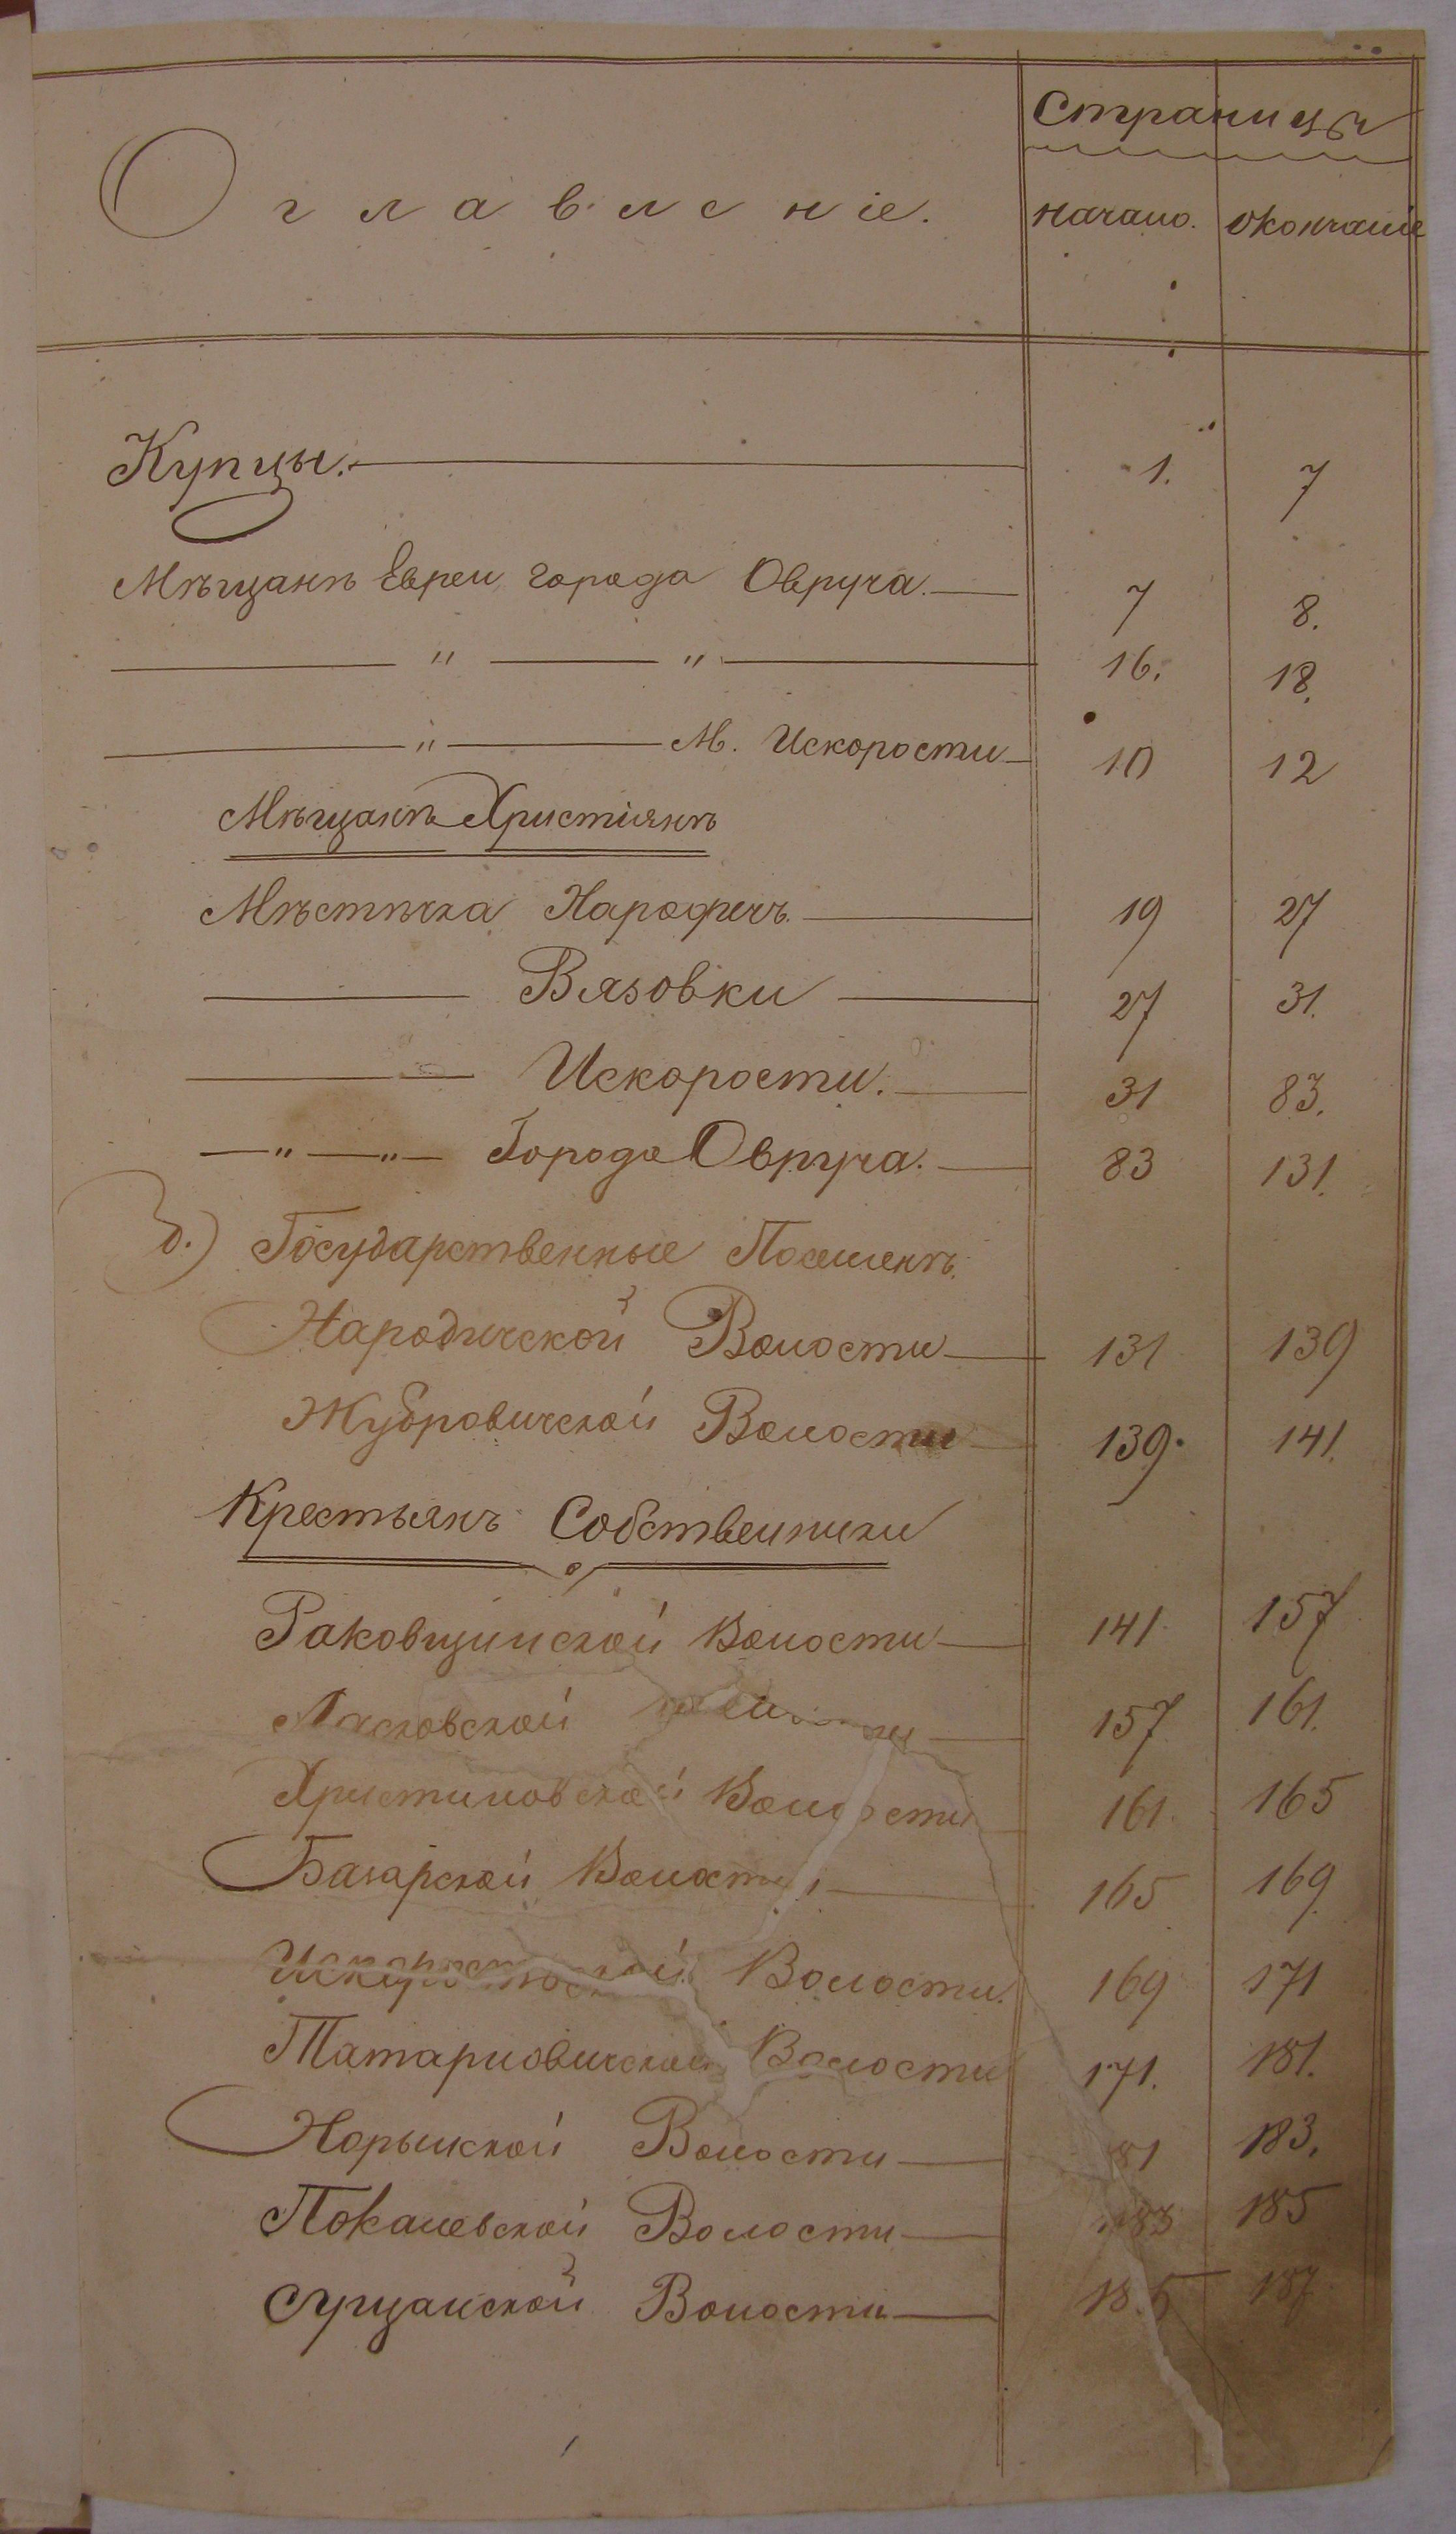 Страницы
Оглавленіе.
начало. окончаніе
Купцы. 1. 7
Мѣщанъ Евреи города Овруча. 7 8.
" " 16. 18.
" М. Искорости 10 12
Мѣщанъ Христіянъ
Мѣстѣчка Народичъ. 19 27
Вязовки 27 31.
Искорости. 31 83.
" " Города Овруча. 83 131.
д.) Государственные Поселенъ.
Народической Волости 131 139
Жубровической Волости 139. 141.
Крестьянъ Собственники
Раковщинской Волости 141. 157
157 161.
Христиновской Волости 161. 165
Базарской Волости 165 169
Искоростской Волости. 169 171
Татарновической Волости 171. 181.
Норынской Волости 181 183.
Покалевской Волости 183 185
Сущанской Волости 185 187